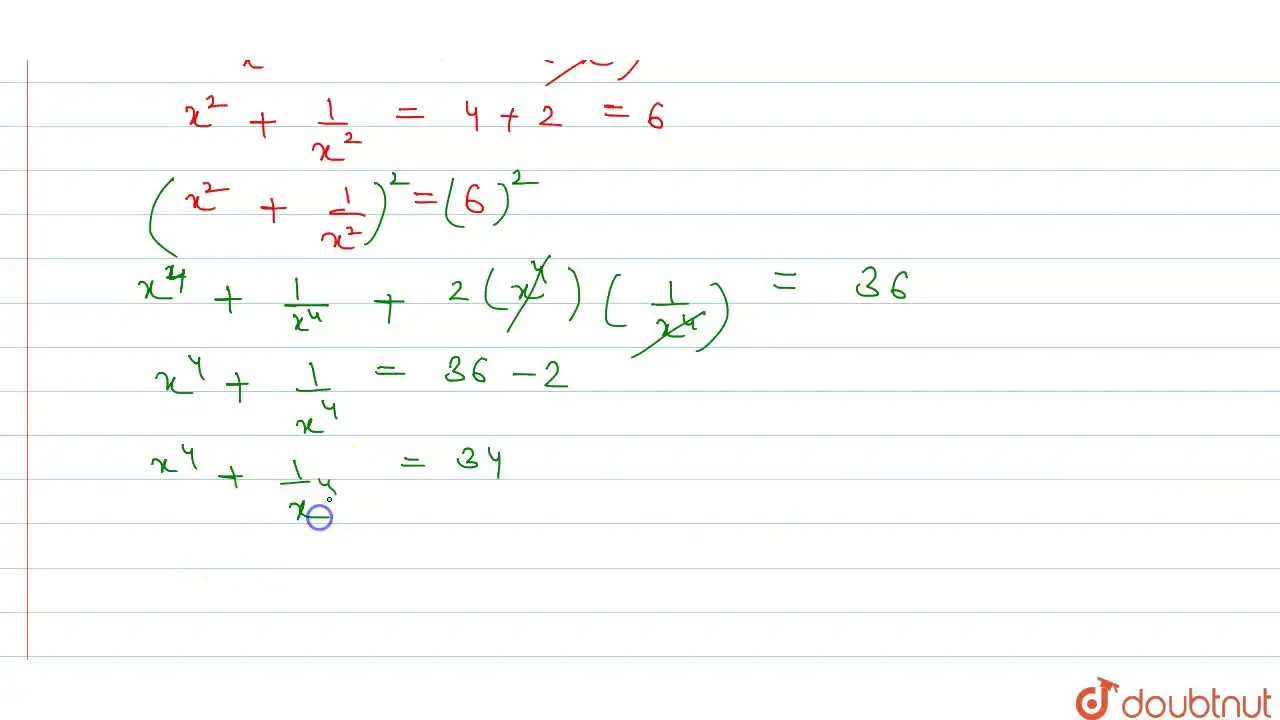 x
x² + 1/x² = 4 + 2 = 6
(x² + 1/x²)² = (6)²
x⁴ + 1/x⁴ + 2(x⁴)(1/x⁴) = 36
x⁴ + 1/x⁴ = 36 - 2
x⁴ + 1/x⁴ = 34
doubtnut